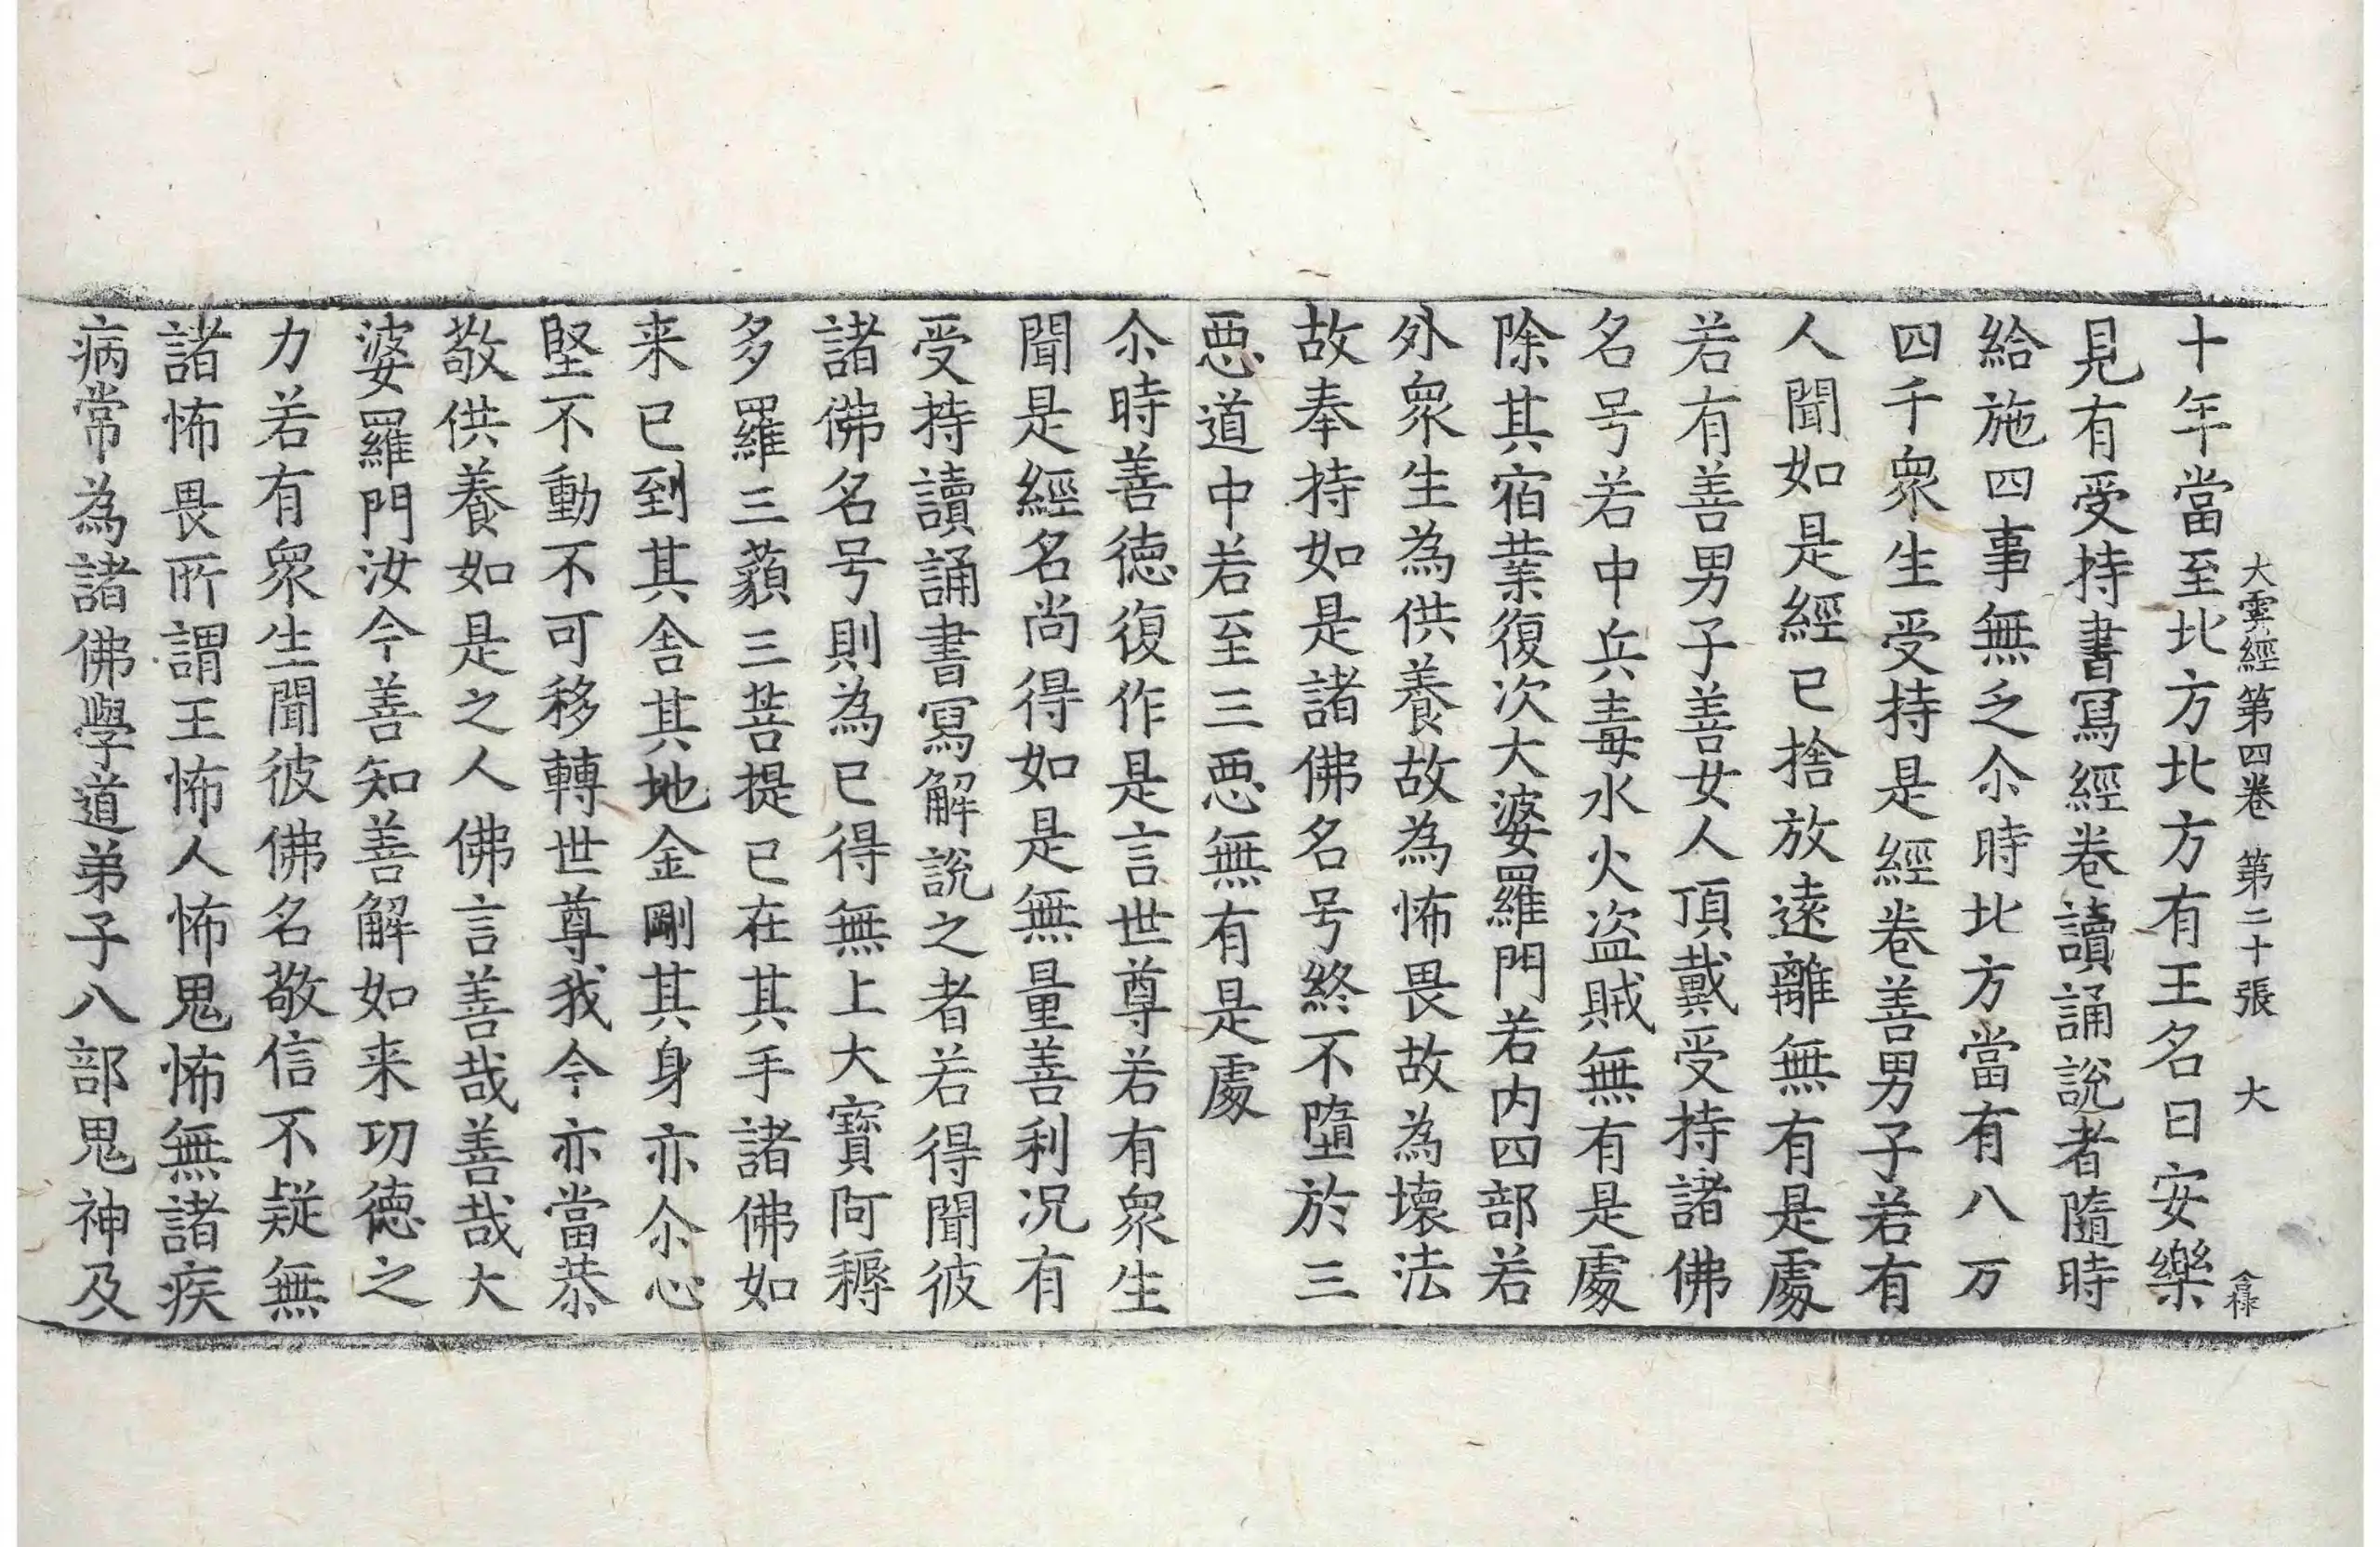 大雲經第四卷 第二十張 大 㑹祿
十年當至北方北方有王名曰安樂
見有受持書寫經卷讀誦說者隨時
給施四事無乏尒時北方當有八万
四千衆生受持是經卷善男子若有
人聞如是經已捨放遠離無有是處
若有善男子善女人頂戴受持諸佛
名号若中兵毒水火盗賊無有是處
除其宿業復次大婆羅門若内四部若
外衆生為供養故為怖畏故為壞法
故奉持如是諸佛名号終不墮於三
惡道中若至三惡無有是處
尒時善德復作是言世尊若有衆生
聞是經名尚得如是無量善利况有
受持讀誦書寫解說之者若得聞彼
諸佛名号則為已得無上大寶阿耨
多羅三藐三菩提已在其手諸佛如
来已到其舍其地金剛其身亦尒心
堅不動不可移轉世尊我今亦當恭
敬供養如是之人佛言善哉善哉大
婆羅門汝今善知善解如来功德之
力若有衆生聞彼佛名敬信不疑無
諸怖畏所謂王怖人怖鬼怖無諸疾
病常為諸佛學道弟子八部鬼神及